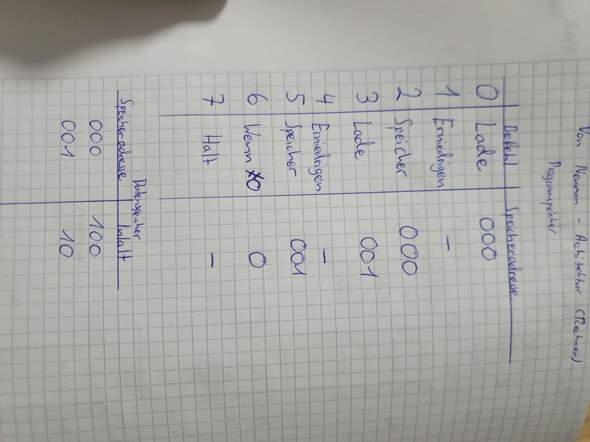 Von Neumann - Architektur (Rechner)
Programmspeicher
Befehl Speicheradresse
0 Lade 000
1 Erniedrigen -
2 Speicher 000
3 Lade 001
4 Erniedrigen -
5 Speicher 001
6 Wenn ≠0 0
7 Halt -
Datenspeicher
Speicheradresse Inhalt
000 100
001 10